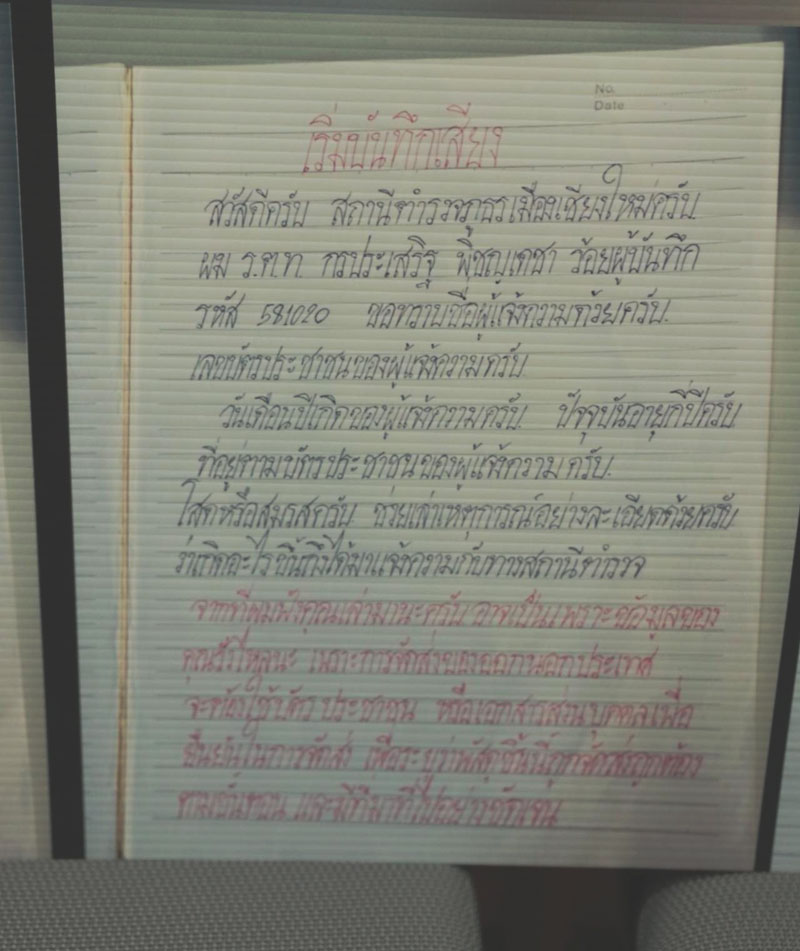 No.
Date
เริ่มบันทึกเสียง
สวัสดีครับ สถานีตำรวจภูธรเมืองเชียงใหม่ครับ
ผม ร.ต.ท. กรประเสริฐ พิชญเดชา ร้อยผู้บันทึก
รหัส 581020 ขอทราบชื่อผู้แจ้งความด้วยครับ
เลขบัตรประชาชนของผู้แจ้งความครับ
วันเดือนปีเกิดของผู้แจ้งความครับ ปัจจุบันอายุกี่ปีครับ
ที่อยู่ตามบัตรประชาชนของผู้แจ้งความครับ
โสดหรือสมรสครับ ช่วยเล่าเหตุการณ์อย่างละเอียดด้วยครับ
ว่าเกิดอะไรขึ้นถึงได้มาแจ้งความกับทางสถานีตำรวจ
จากที่ผมฟังคุณเล่ามานะครับ อาจเป็นเพราะข้อมูลของ
คุณรั่วไหลนะ เพราะการจัดส่งของออกนอกประเทศ
จะต้องใช้บัตรประชาชน หรือเอกสารส่วนบุคคลเพื่อ
ยืนยันในการจัดส่ง เพื่อระบุว่าพัสดุชิ้นนี้ถูกจัดส่งถูกต้อง
ตามขั้นตอน และมีที่มาที่ไปอย่างชัดเจน